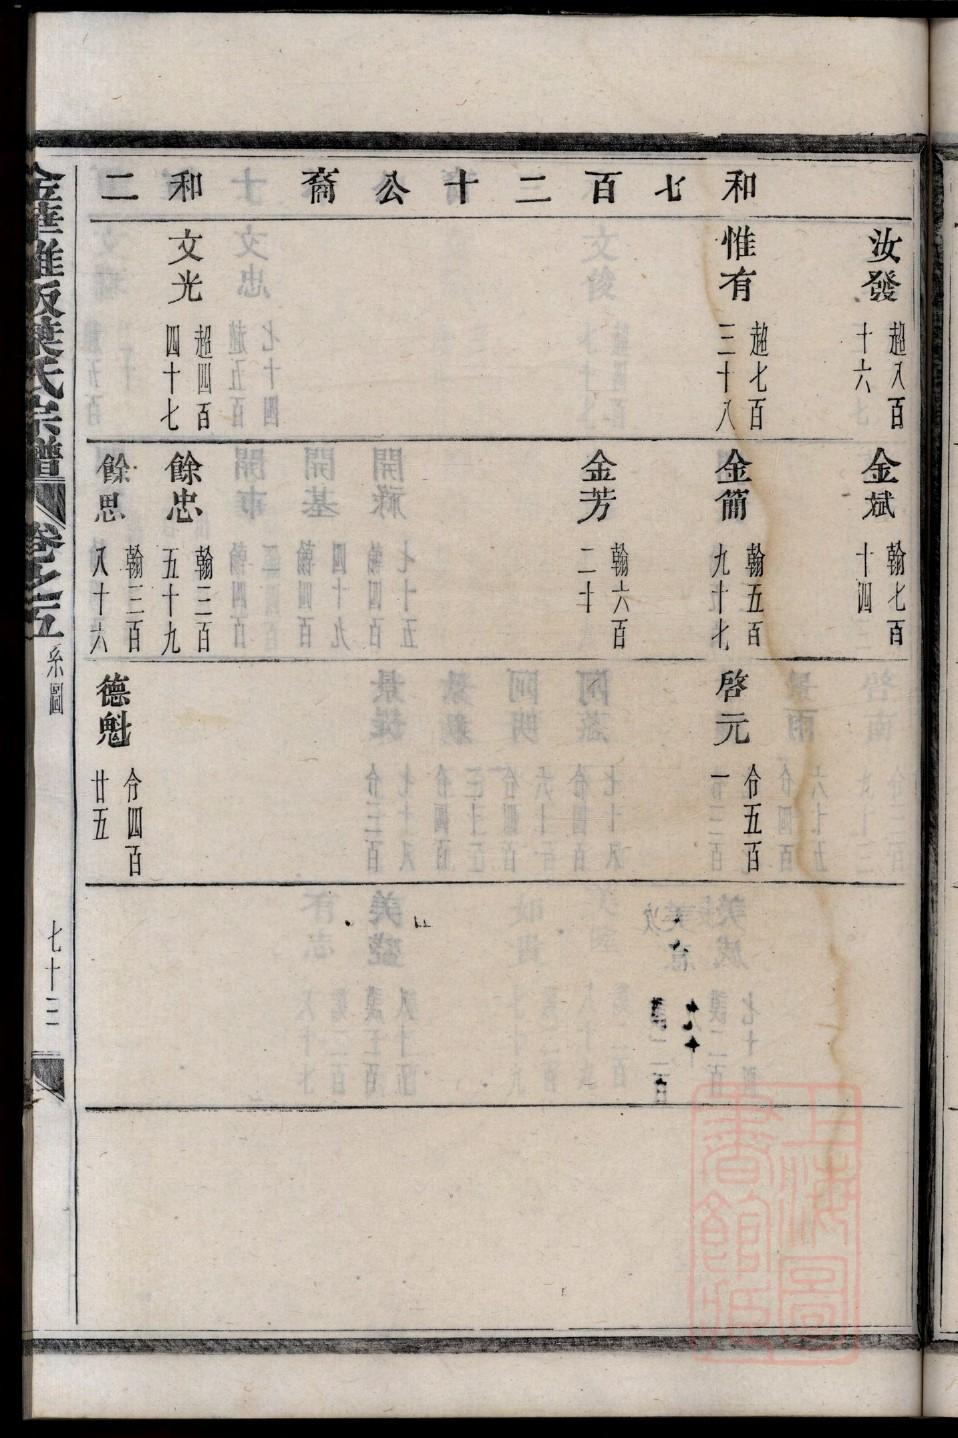 和七百二十公裔
和二
汝發
超八百
十六
惟有
超七百
三十八
文光
超四百
四十七
金斌
翰七百
十四
金簡
翰五百
九十七
金芳
翰六百
二十
餘忠
翰三百
五十九
餘思
翰三百
八十六
啓元
令五百
一
德魁
令四百
廿五
葉氏宗譜
卷之五
系圖
七十三
上海圖
書館藏